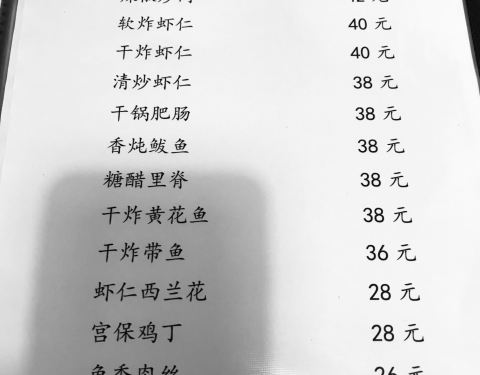 软炸虾仁 40 元
干炸虾仁 40 元
清炒虾仁 38 元
干锅肥肠 38 元
香炖鲅鱼 38 元
糖醋里脊 38 元
干炸黄花鱼 38 元
干炸带鱼 36 元
虾仁西兰花 28 元
宫保鸡丁 28 元
鱼香肉丝 26 元